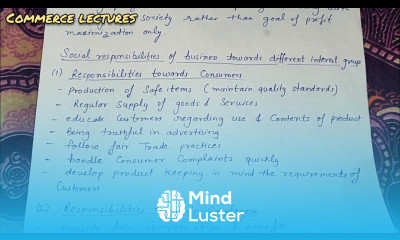 COMMERCE LECTURES
society rather than goal of profit
maximization only.
Social responsibilities of business towards different interest groups
(1) Responsibilities towards Consumers
- Production of Safe items (maintain quality standards)
- Regular Supply of goods & Services
- educate Customers regarding use & Contents of product
- Being truthful in advertising
- follow fair Trade practices
- handle Consumer Complaints quickly
- develop product keeping in mind the requirements of
Customers
(2) Responsibilities
Mind
Luster